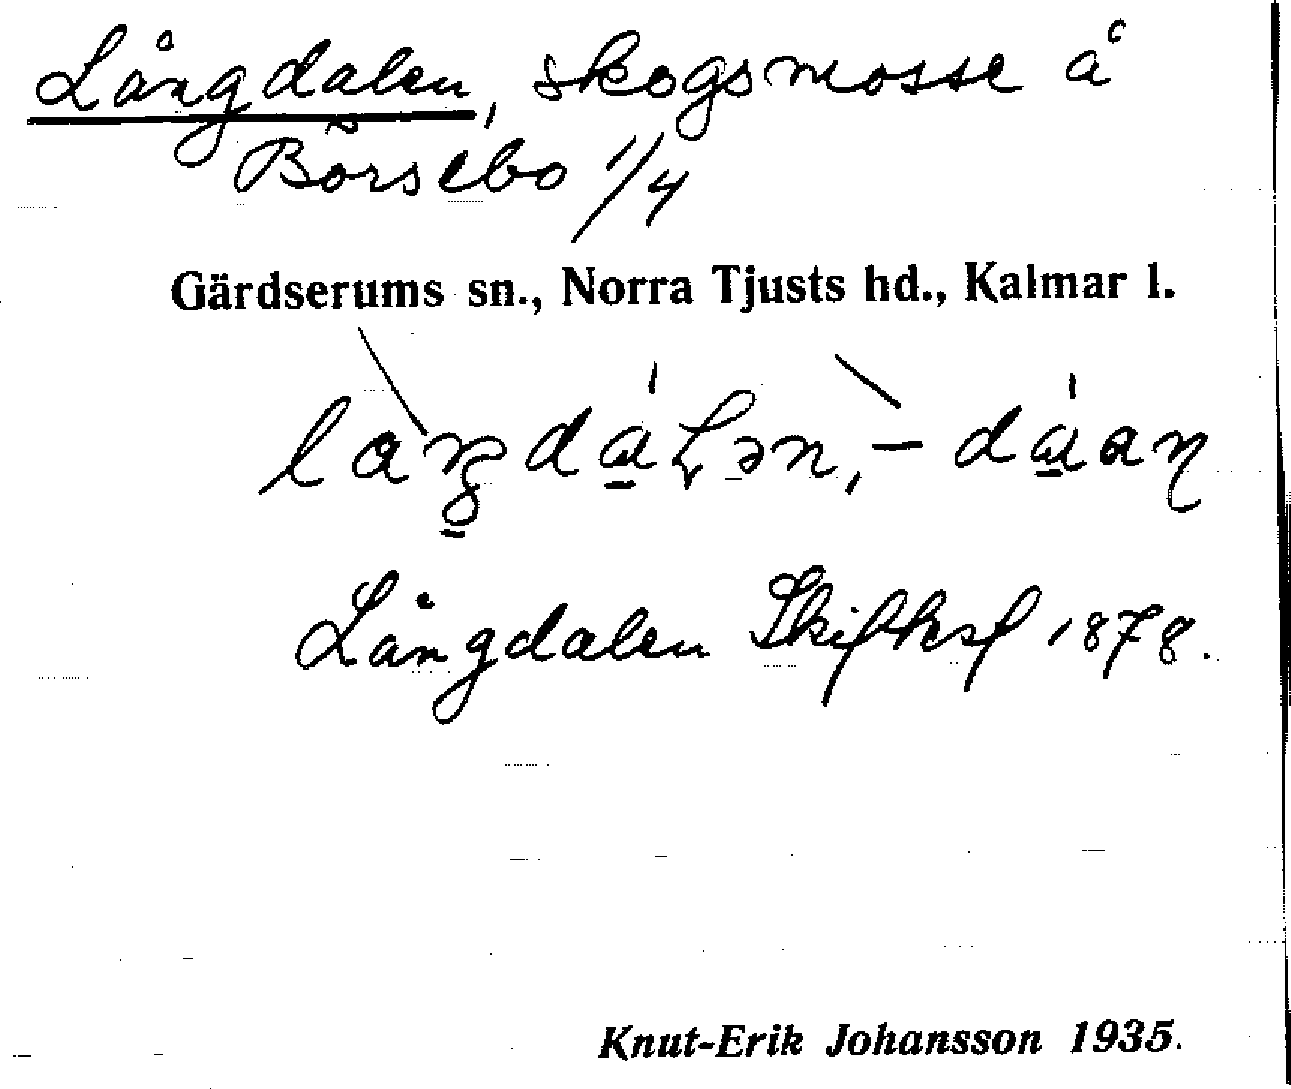 Långdalen, skogsmosse å
Börsebo 1/4
Gärdserums sn., Norra Tjusts hd., Kalmar l.
Långdalen Skifksf 1878.
Knut-Erik Johansson 1935.